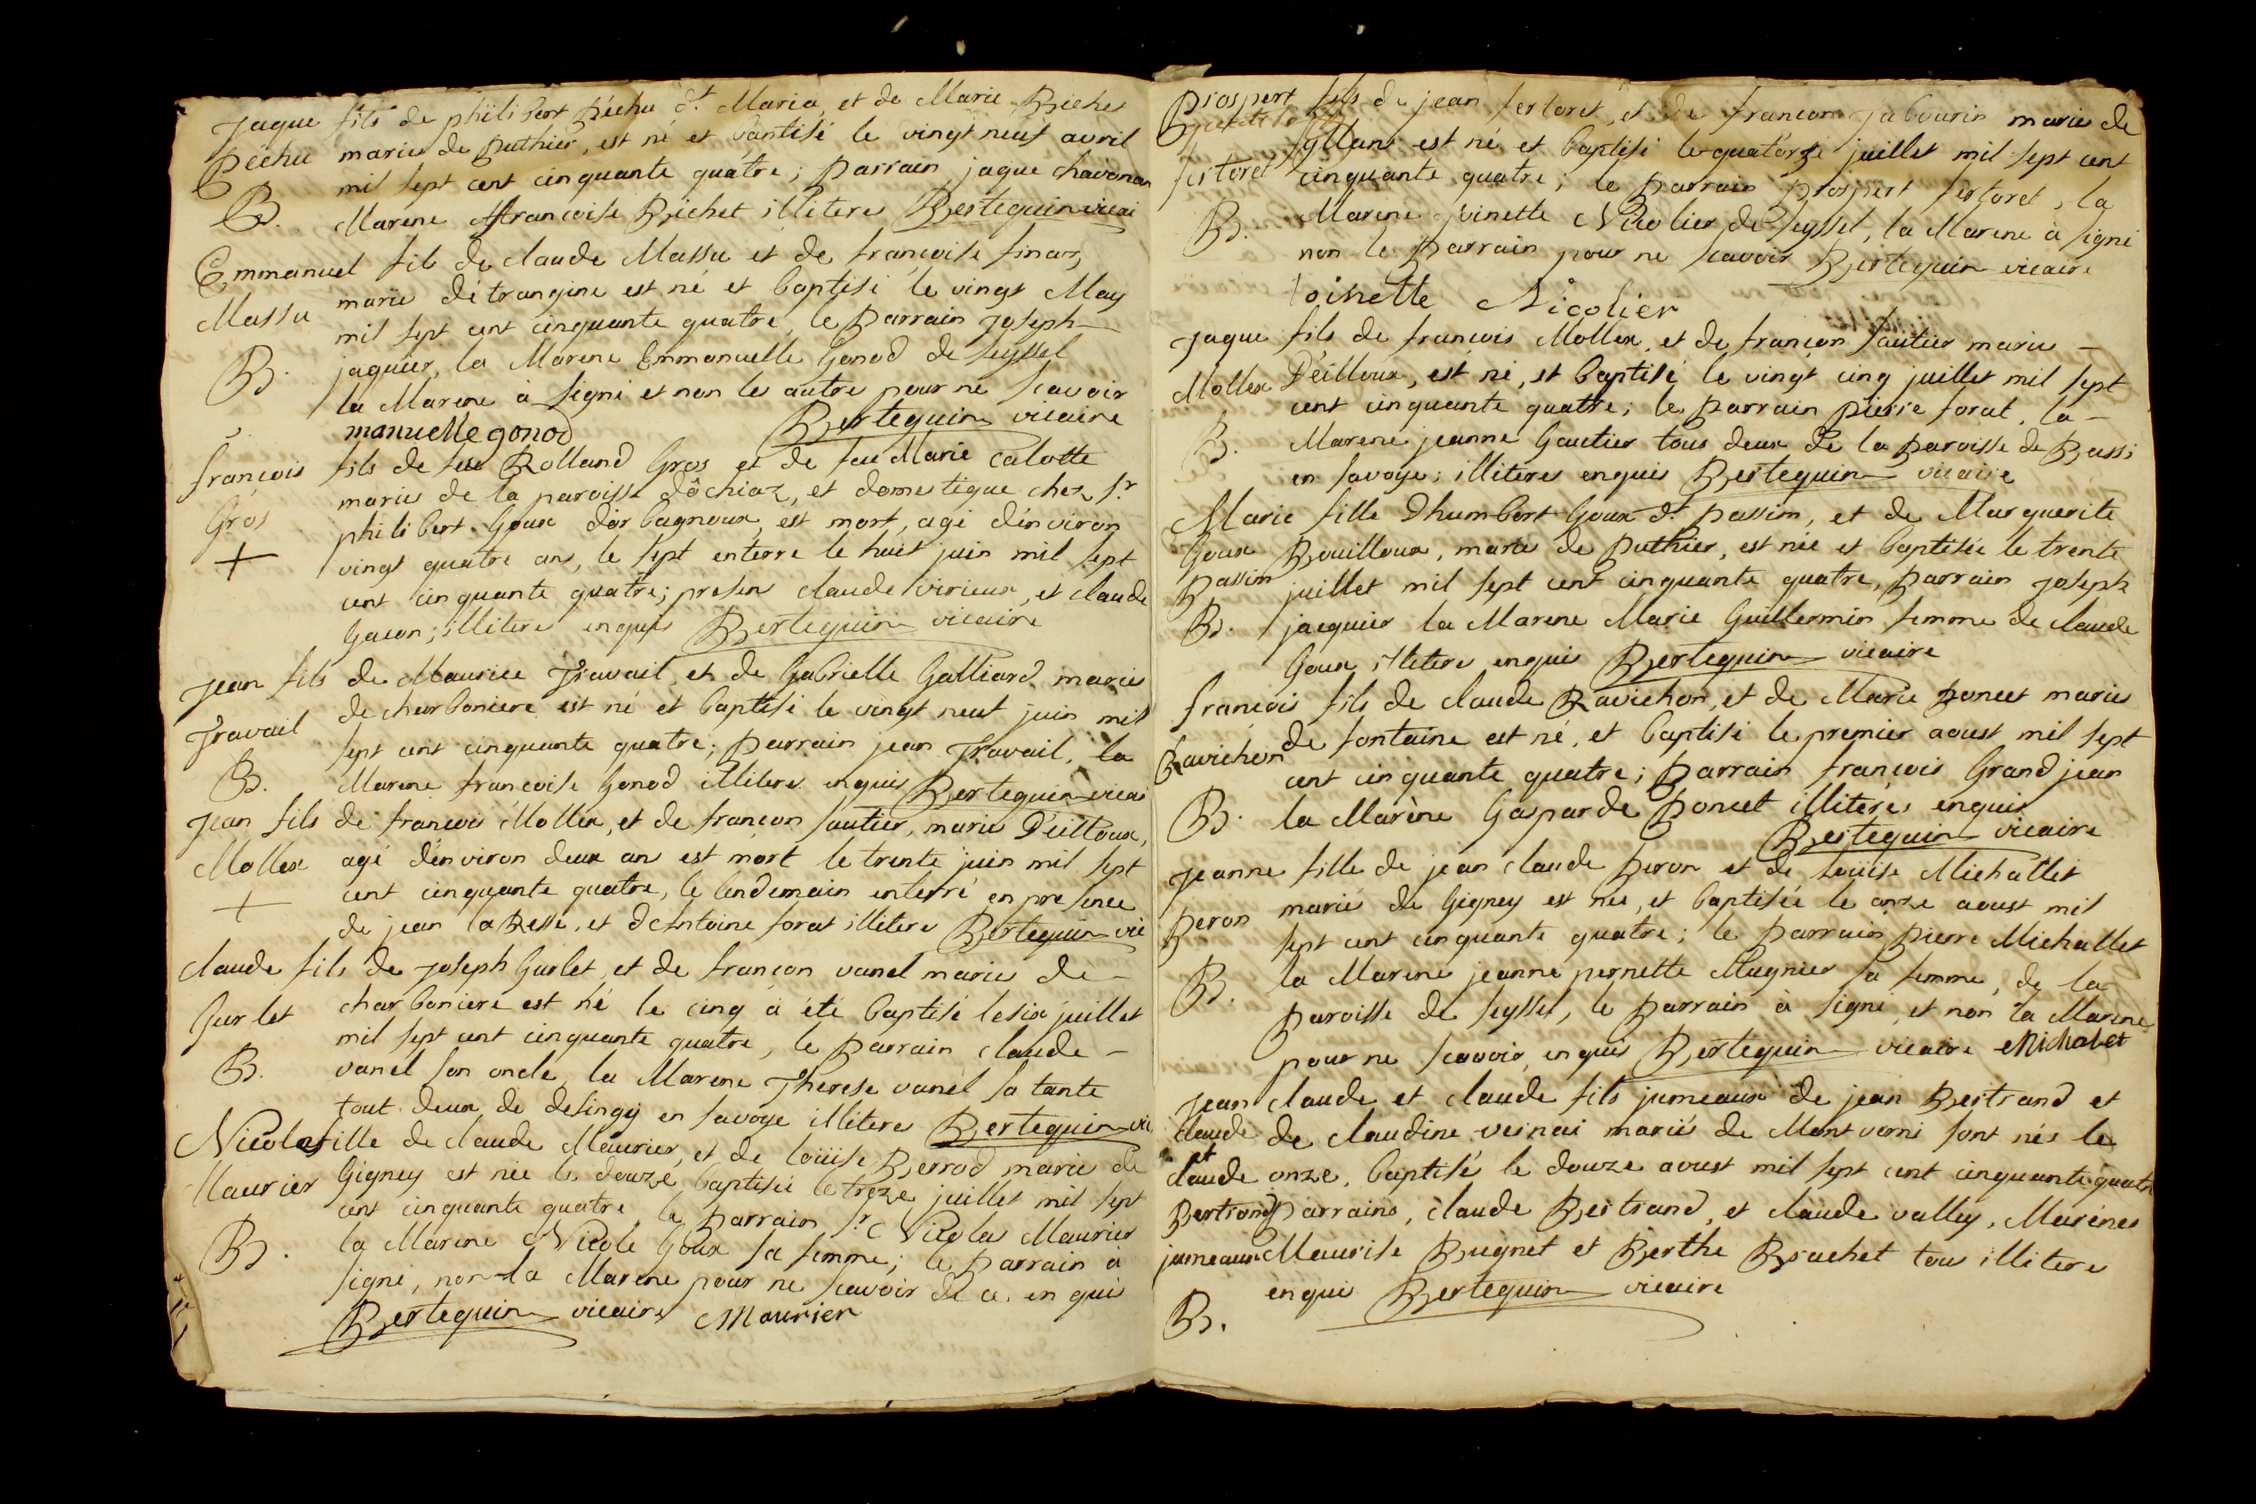 jaque fils de philibert Péchu dt Maria, et de Marie Richet
Péchu mariés de puthier, est né et baptisé le vingt neuf avril
mil sept cent cinquante quatre; parrain jaque chavanan
B. Marene francoise Richet illitere Bertequin vicai
Emmanuel fils de claude Massu et de françoise finaz,
Massu mariés détrangine est né et baptisé le vingt May
mil sept cent cinquante quatre, le parrain Joseph
B. jaquier, la Marene Emmanuelle Gonod de seyssel
la Marene à signé et non les autre pour ne scavoir
manuelle gonod Bertequin vicaire
françois fils de feu Rolland Gros et de feu Marie calotte
Gros mariés de la paroisse dôchiaz, et domestique chez sr
philibert Goux dorbagnoux, est mort, agé d'environ
+ vingt quatre ans, le sept enterre le huit juin mil sept
cent cinquante quatre; presens claude virieux, et claude
Gacon; illitere enquis Bertequin vicaire
Jean fils de Maurice Travail, et de Gabrielle Galliard mariés
Travail de charboniere est né et baptisé le vingt neuf juin mil
sept cent cinquante quatre; parrain jean Travail, la
B. Marene francoise Gonod illitere enquis Bertequin vicai
Jean fils de francois Mollex, et de françon sautier, mariés D'eilloux,
Mollex agé d'environ deux ans est mort le trente juin mil sept
+ cent cinquante quatre, le lendemain enterré en presence
de jean laBesse, et dentoine forat illitere Bertequin vic
claude fils de joseph Gurlet, et de françon vanel mariés de
Gurlet charboniere est né le cinq à été baptisé le six juillet
mil sept cent cinquante quatre, le parrain claude
B. vanel son oncle, la Marene Therese vanel sa tante
tout deux de desingy en savoye illitere Bertequin vic
Nicolas fille de claude Maurier, et de loüise Berrod mariés de
Maurier Gigney est née le douze baptisée le treze juillet mil sept
cent cinquante quatre, le parrain sr Nicolas Maurier
B. la Marene Nicole Goux sa femme; le parrain à
signé, non la Marene pour ne scavoir de ce enquis
Bertequin vicaire Maurier
Prospert fils de jean fertoret, et de françon jabourin mariés de
fertoret syllans est né et baptisé le quatorze juillet mil sept cent
cinquante quatre; le parrain prospert fertoret, la
B. Marene toinette Nicolier de seyssel, la Marene à signé
non le parrain pour ne scavoir Bertequin vicaire
toinette Nicolier
jaque fils de francois Mollex, et de françon sautier mariés
Mollex D'eilloux, est né, et baptisé le vingt cinq juillet mil sept
cent cinquante quatre; le parrain pierre forat, la
B. Marene jeanne Gautier tous deux de la paroisse de Bassi
en savoye; illiteres enquis Bertequin vicaire
Marie fille Dhumbert Goux dt passim, et de Marguerite
Goux Bouilloux, mariés de puthier, est née et baptisée le trente
passim juillet mil sept cent cinquante quatre, parrain Joseph
B. jacquier la Marene Marie Guillermin femme de claude
Goux illitere enquis Bertequin vicaire
françois fils de claude Ravichon, et de Marie poncet mariés
Ravichon de fontaine est né, et baptisé le premier aoust mil sept
cent cinquante quatre; parrain françois Grand jean
B. la Marène Gasparde poncet illitéres enquis
Bertequin vicaire
Jeanne fille de jean claude peron et de loüise Michallet
peron mariés de Gigney est née, et baptisée le onze aoust mil
sept cent cinquante quatre; le parrain pierre Michallet
B. la Marene jeanne pernette Magnier sa femme, de la
paroisse de seyssel, le parrain à signé, et non la Marene
pour ne scavoir enquis Bertequin vicaire Michalet
Jean claude et claude fils jumeaux de jean Bertrand et
claude de claudine vernai mariés de Montverni sont nés le
et claude onze, baptisé le douze aoust mil sept cent cinquante quatre
Bertrand parrains, claude Bertrand, et claude valley, Marènes
jumeaux Maurise Bugnet et Berthe Brachet tous illitere
enquis Bertequin vicaire
B.